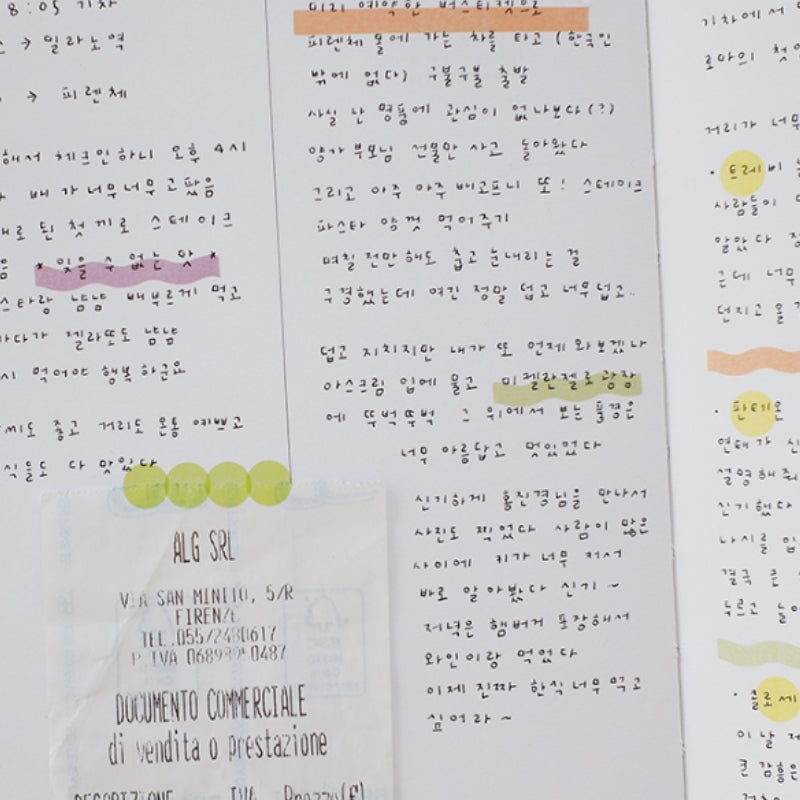 8:05 기차
→ 밀라노역
→ 피렌체
해서 체크인하니 오후 4시
배가 너무너무 고팠음
대로 된 첫 끼로 스테이크
* 잊을 수 없는 맛 *
스타랑 냠냠 배부르게 먹고
하다가 젤라또도 냠냠
시 먹어야 행복 하군요
씨도 좋고 거리도 온통 예쁘고
식들도 다 맛있다
ALG SRL
VIA SAN MINIATO, 5/R
FIRENZE
TEL.055/2480617
P.IVA
DOCUMENTO COMMERCIALE
di vendita o prestazione
DESCRIZIONE IVA Prezzo(€)
미리 예약한 버스티켓으로
피렌체 몰에 가는 차를 타고 (한국인
밖에 없다) 구불구불 출발
사실 난 명품에 관심이 없나보다(?)
양가부모님 선물만 사고 돌아왔다
그리고 아주 아주 배고프니 또! 스테이크
파스타 양껏 먹어주기
며칠 전만 해도 춥고 눈내리는 걸
구경했는데 여긴 정말 덥고 너무덥고..
덥고 지치지만 내가 또 언제 와보겠나
아스크림 입에 물고 미켈란젤로광장
에 뚜벅뚜벅 그 위에서 보는 풍경은
너무 아름답고 멋있었다
신기하게 홍진경님을 만나서
사진도 찍었다 사람이 많은
사이에 키가 너무 커서
바로 알아봤다 신기~
저녁은 햄버거 포장해서
와인이랑 먹었다
이제 진짜 한식 너무 먹고
싶어라~
기차에서
로마의 첫
거리가 너무
· 트레비
사람들이
알았다
근데 너무
던지고 올
· 판테온
연태가 신
설명해줘
신기했다
나시를 입
결국 큰
두르고 들어
· 콜로세
이 날
큰 감흥은